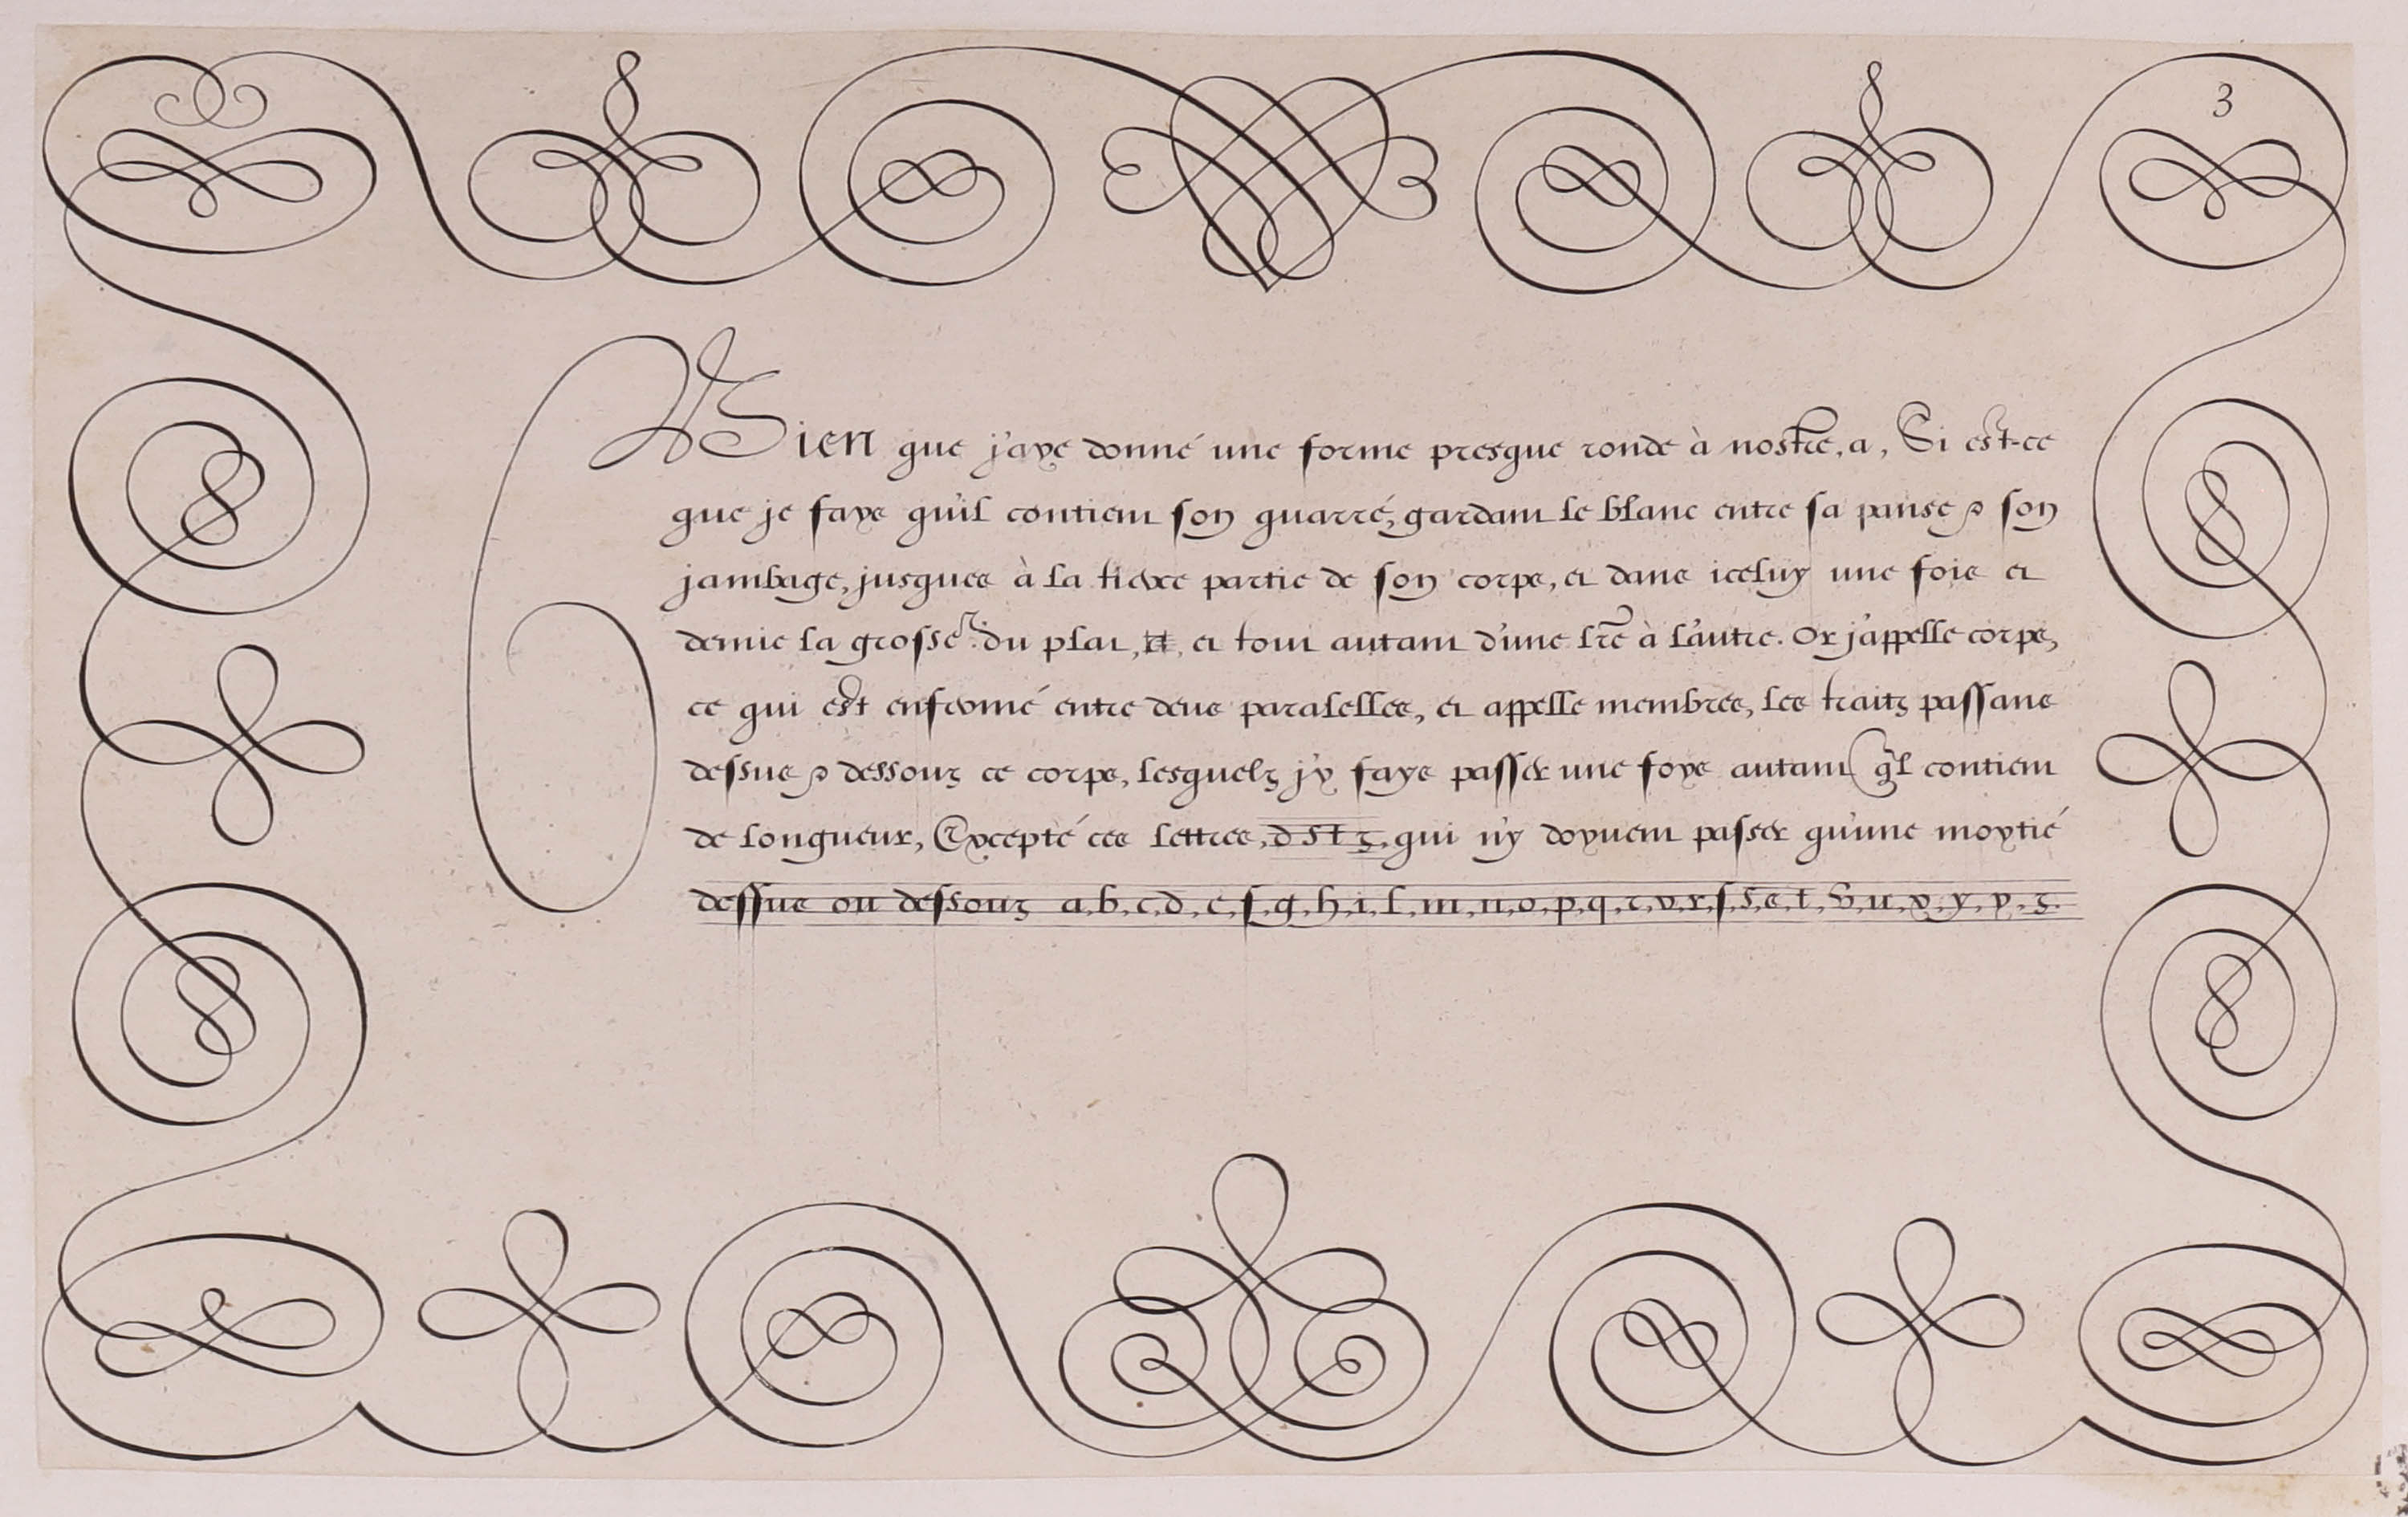 3
Bien que j'aye donné une forme presque ronde à nostre, a, Si est-ce
que je fays qu'il contient son quarré, gardant le blanc entre sa panse & son
jambage, jusques à la tierce partie de son corps, et dans iceluy une fois et
demie la grosser. du plat, et tout autant d'une lre à l'autre. Or j'appelle corps,
ce qui est enfermé entre deus paralelles, et appelle membres, les traitz passans
dessus & dessouz ce corps, lesquelz j'y fays passer une foys autant ql contient
de longueur, Excepté ces lettres, d s t z, qui n'y doyuent passer qu'une moytié
dessus ou dessouz a, b, c, d, e, f, g, h, i, l, m, n, o, p, q, r, r, r, ſ, s, s, t, v, u, x, y, y, z.